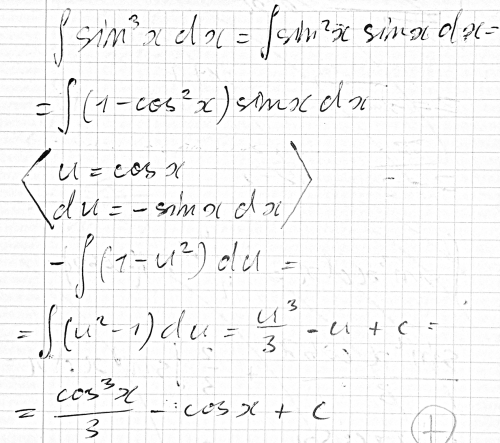 ∫ sin³x dx = ∫ sin²x sinx dx =
= ∫ (1 - cos²x) sinx dx
⟨ u = cosx
du = -sinx dx ⟩
- ∫ (1 - u²) du =
= ∫ (u² - 1) du = u³/3 - u + c =
= cos³x/3 - cosx + c
+